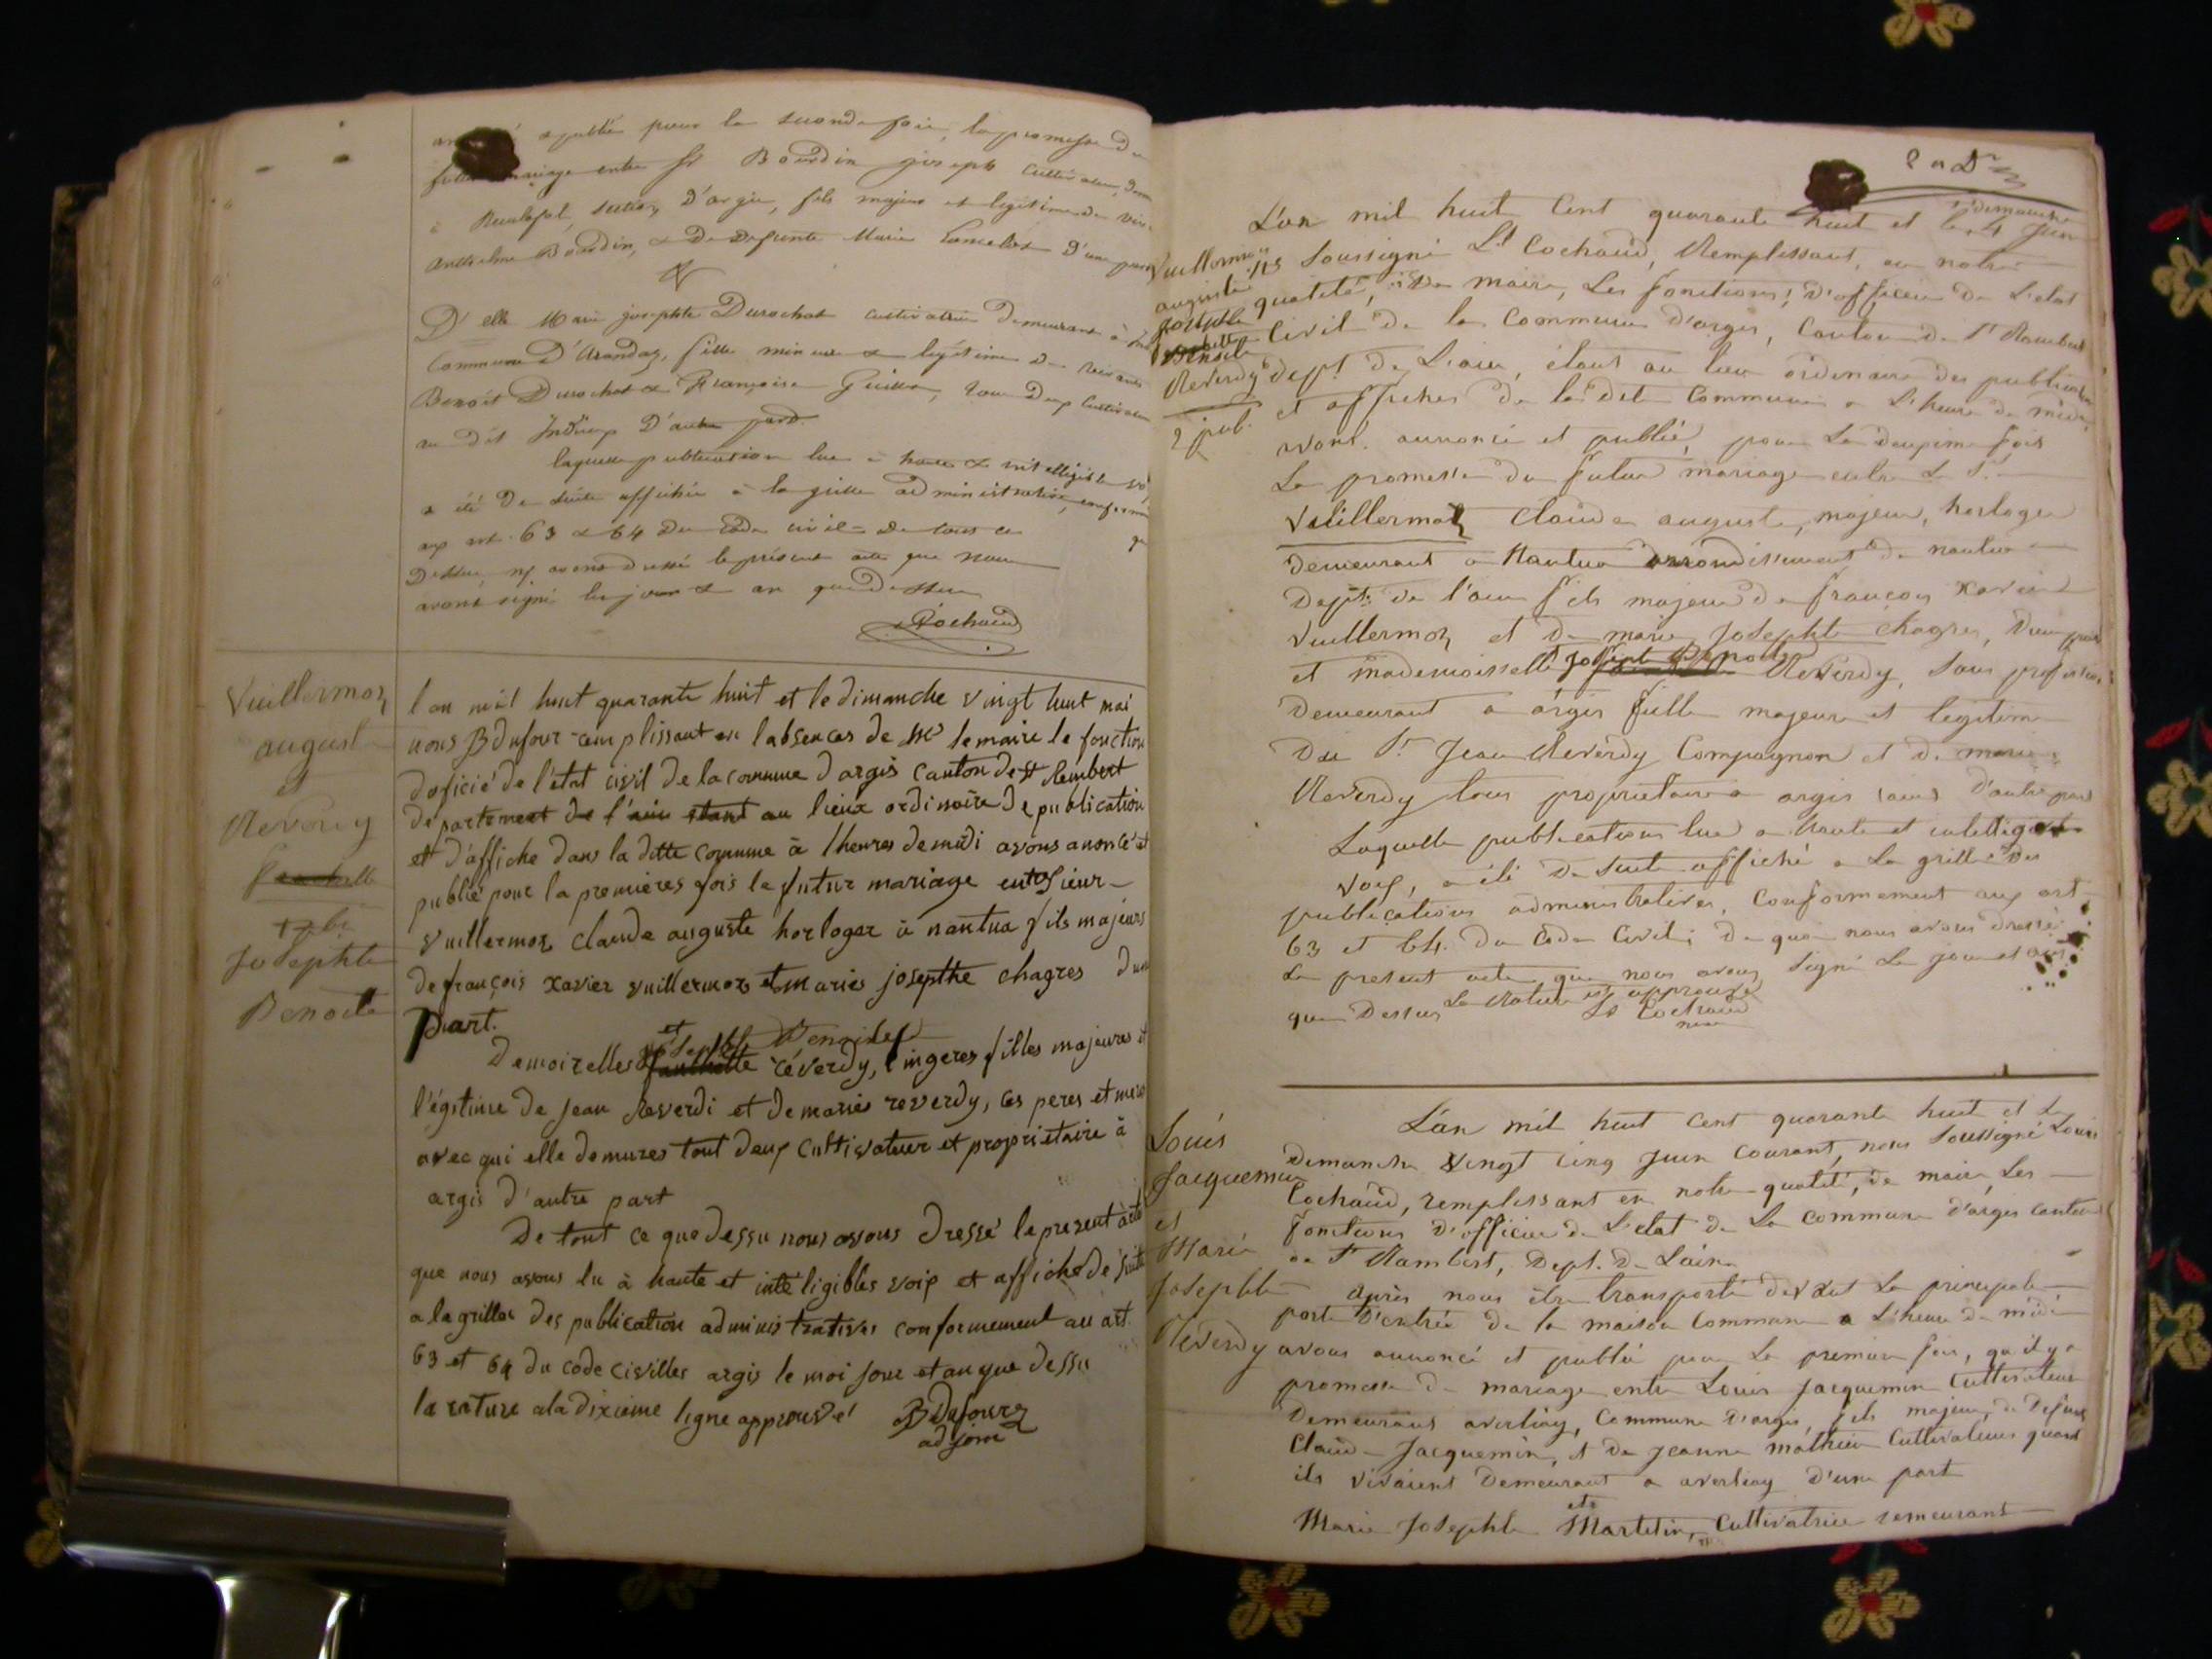 publié pour la seconde fois, la promesse de
mariage entre Sr Bourdin joseph cultivateur,
à section D'argis, fils majeur et légitime de
Bourdin, & De Defunte Marie D'une part
&
D'elle Marie josephte Durochat cultivatrice demeurant à
Commune D'Arandaz, fille mineure & légitime de vivants
Benoit Durochat & Françoise tous Deux Cultivateurs
au dit D'autre part.
laquelle publication lue à haute & intelligible
a été De suite affichée à la grille administrative,
aux art. 63 & 64 Du Code civil = De tout ce
Dessus, ns avons dressé le présent acte que nous
avons signé les jour & an que Dessus
Cochaud
Vuillermoz
august
et
Reverdy
Josephte
Benoite
l an mil huit quarante huit et le dimanche vingt huit mai
nous B dufour remplissant en l absences de Mr le maire le fonction
d oficié de l'état civil de la comune d argis canton de St Rembert
departement de l'ain etant au lieux ordinaire de publication
et d'affiche dans la ditte comune à l heures de midi avons anoncé et
publié pour la premières fois le futur mariage entre sieur
vuillermoz claude auguste horloger à nantua fils majeurs
de françois xavier vuillermoz et maries josepthe chagres d une
part.
et
Demoizelles réverdy, lingeres filles majeures et
l'égitime de jean Reverdi et de maries reverdy, ces peres et meres
avec qui elle demures tout deux cultivateur et proprietaire à
argis d'autre part
De tout ce que dessu nous avons dressé le present acte
que nous avons lu à haute et inteligibles voix et affiche de suite
a la griller des publication administratives conformement au art.
63 et 64 du code civilles argis le moi jour et an que dessu
la rature a la dixieme ligne approuvé B Dufour
adjoin
L'an mil huit Cent quarante huit et le 4 Juin
dimanche
Vuillermoz
auguste
josephte
Benoite
Reverdy
2e pub.
nous Soussigné Ls Cochaud, Remplissant, en notre
qualité, De maire, Les fonctions, D'officier De L'etat
Civil De la Commune D'argis, Canton De St Rambert
Dept. De L'ain, étant au lieu ordinaire des publications
et affiches De la dite Commune a L'heure De midi,
avons annoncé et publié, pour La deuxime fois
La promesse De futur mariage entre Le Sr.
Vuillermoz Claude auguste, majeur, horloger
Demeurant a Nantua arrondissement De nantua
Dept. De l'ain fils majeur De françois xavier
Vuillermoz et De marie Josephte chagres, D'une part
et mademoisselle Reverdy, Sans profession,
Demeurant a argis fille majeure et legitime
Du Sr. Jean Reverdy Compagnon et De marie
Reverdy tous proprietaire a argis (ain) D'autre part
Laquelle publication lue a haute et intelligible
voix, a été De Suite affiché a La grille Des
publications administratives, Conformement aux art.
63 et 64. Du Code Civil; De quoi nous avons Dressé
Le present acte que nous avons Signé Le jour et an
que Dessus La Rature est approuvé
Ls Cochaud
Louis
Jacquemin
et
Marie
Josephte
Reverdy
L'an mil huit cent quarante huit et Le
Dimanche Vingt cinq Juin Courant, nous Soussigné Louis
Cochaud, remplissant en notre qualité, De maire, Les
fonctions D'officier De L'etat De La Commune D'argis canton
De St Rambert, Dept. De L'ain
après nous être transporté devant La principale
porte D'entrée De la maison Commune a L'heure De midi
avons annoncé et publié pour La première fois, qu'il y a
promesse De mariage entre Louis Jacquemin Cultivateur
Demeurant averliay, Commune D'argis, fils majeur, De Defunt
Claude Jacquemin, et De Jeanne mathieu Cultivateurs quand
ils Vivaient Demeurant a averliay D'une part
et
Marie Josephte Martelin, Cultivatrice demeurant